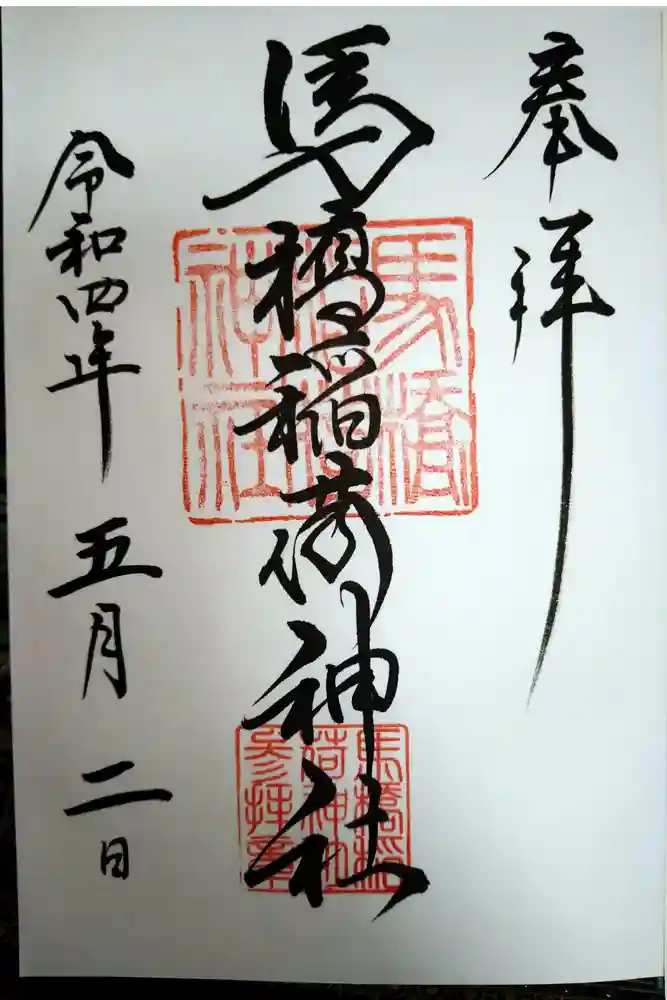 奉拝
馬橋稲荷神社
馬橋稲荷神社
馬橋稲荷神社参拝章
令和四年五月二日